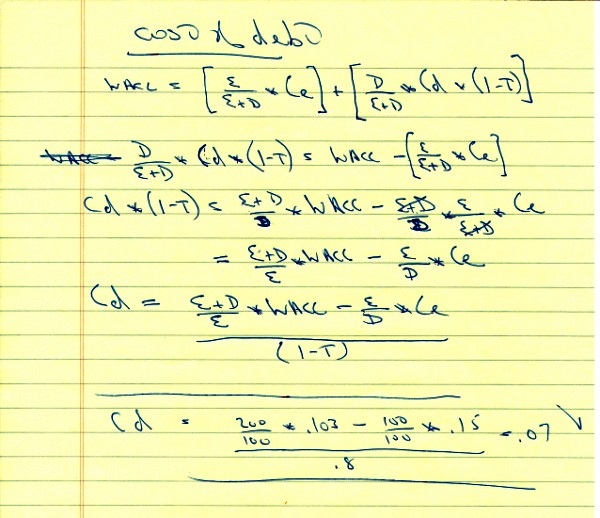 cost of debt
WACC = [E/E+D * Ce] + [D/E+D * Cd * (1-T)]
WACC = D/E+D * Cd * (1-T) = WACC - [E/E+D * Ce]
Cd * (1-T) = E+D/D * WACC - E+D/D * E/E+D * Ce
= E+D/E * WACC - E/D * Ce
Cd = E+D/E * WACC - E/D * Ce
(1-T)
Cd = 200/100 * .103 - 100/100 * .15 = .07 √
.8